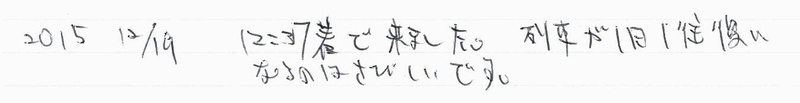 2015 12/19 12:37着で来ました。列車が1日1往復に
なるのはさびしいです。